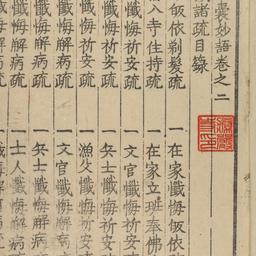 囊妙語卷之二
諸疏目錄
皈依剃髮疏 一在家懺悔皈依
入寺住持疏 一在家立班奉佛
懺悔祈安疏 一文官懺悔祈安
懺悔祈安疏 一漁父懺悔祈安疏
懺悔祈安疏 一兵士懺悔祈安疏
懺悔解病疏 一文官懺悔解病疏
懺悔解病疏 一兵士懺悔解病疏
懺悔解病疏 一士人懺悔解病疏